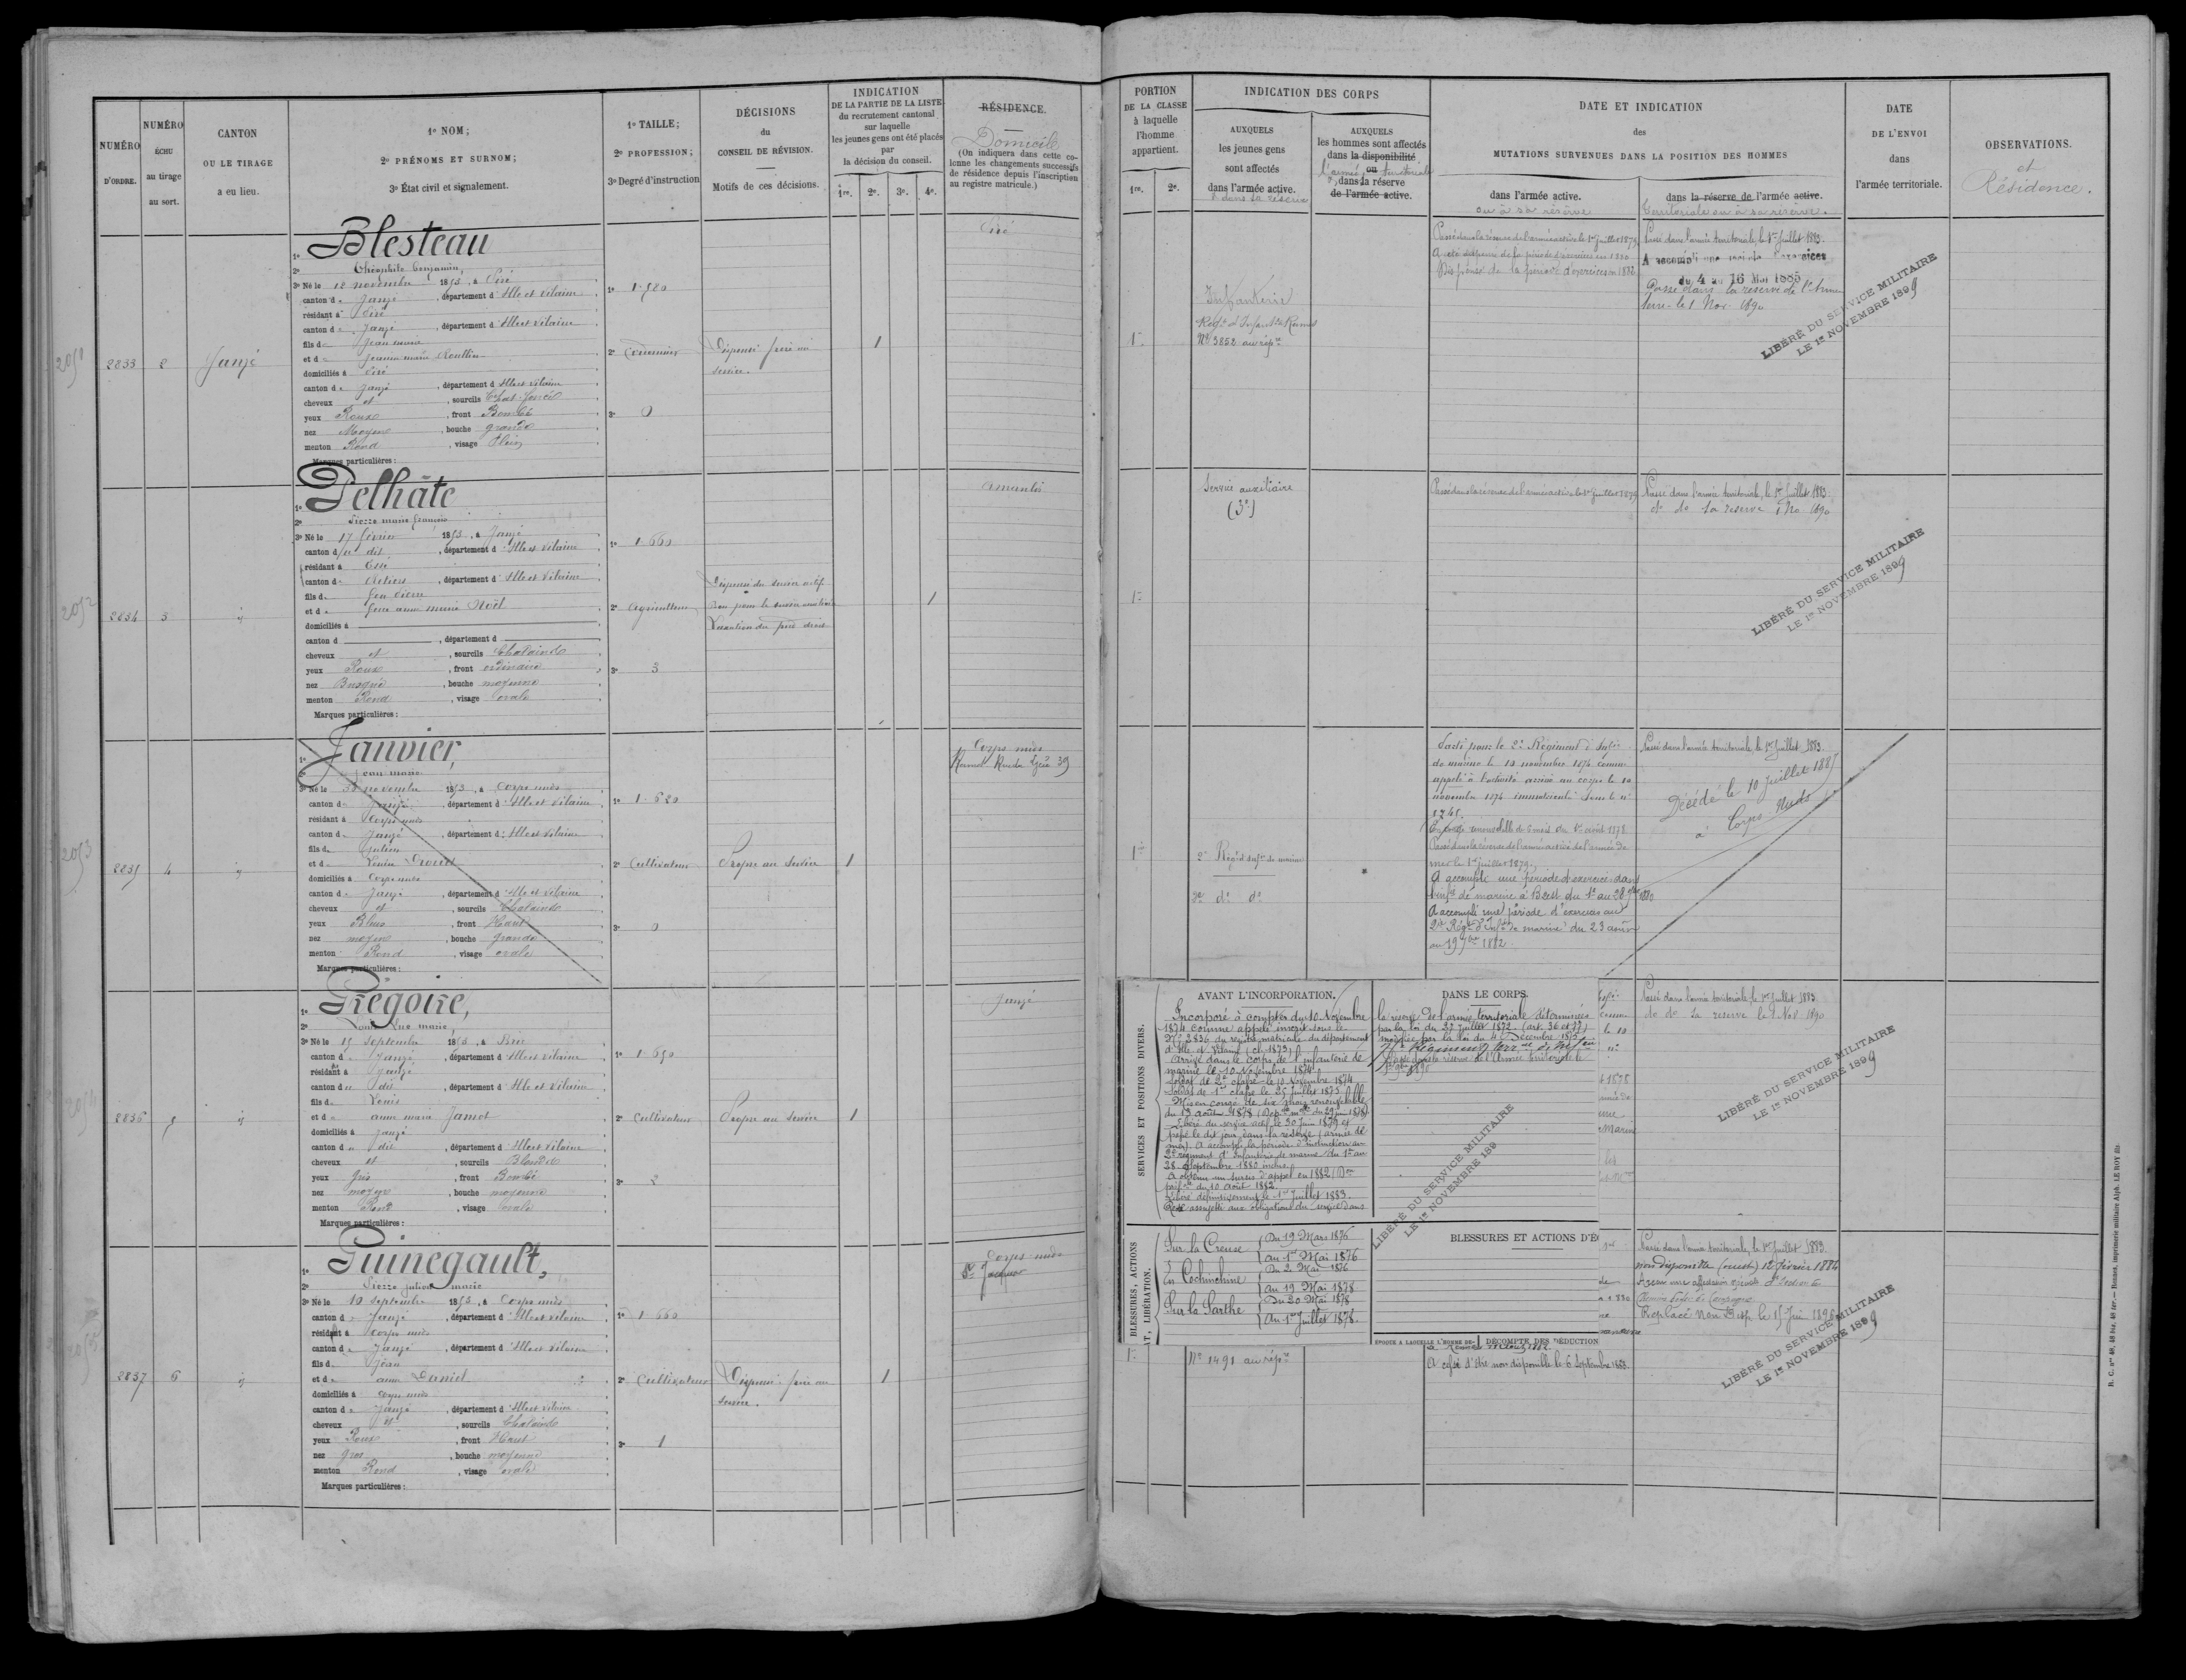 NUMÉRO
D'ORDRE.
NUMÉRO
ÉCHU
au tirage
au sort.
CANTON
OU LE TIRAGE
a eu lieu.
1º NOM;
2º PRÉNOMS ET SURNOM;
3º État civil et signalement.
1º TAILLE;
2º PROFESSION;
3º Degré d'instruction
DÉCISIONS
du
CONSEIL DE RÉVISION.
Motifs de ces décisions.
INDICATION
DE LA PARTIE DE LA LISTE
du recrutement cantonal
sur laquelle
les jeunes gens ont été placés
par
la décision du conseil.
1re. 2e. 3e. 4e.
RÉSIDENCE.
Domicile
(On indiquera dans cette co-
lonne les changements successifs
de résidence depuis l'inscription
au registre matricule.)
2833
2
Janzé
1º Blesteau
2º Théophile Benjamin,
3º Né le 12 novembre 1853, à Piré
canton de Janzé, département d'Ille et Vilaine
résidant à Piré
canton de Janzé, département d'Ille et Vilaine
fils de Jean marie
et de Jeanne marie
domiciliés à Piré
canton de Janzé, département d'Ille et Vilaine
cheveux et, sourcils Chat. foncé
yeux Roux, front Bombé
nez Moyen, bouche grande
menton Rond, visage Plein
Marques particulières:
1º 1.580
2º
3º 0
Dispensé frère au
service.
1
Piré
2834
3
id
1º Pelhâte
2º Pierre marie françois
3º Né le 17 février 1853, à Janzé
canton du dit, département d'Ille et Vilaine
résidant à Essé
canton de Retiers, département d'Ille et Vilaine
fils de feu Pierre
et de feue anne marie Noël
domiciliés à
canton d , département d
cheveux et, sourcils Chatains
yeux Roux, front ordinaire
nez Busqué, bouche moyenne
menton Rond, visage ovale
Marques particulières:
1º 1.660
2º agriculteur
3º 3
Dispensé du service actif
Bon pour le service auxiliaire
1
amanlis
2835
4
id
1º Janvier,
2º Jean marie
3º Né le 30 novembre 1853, à Corps nuds
canton de Janzé, département d'Ille et Vilaine
résidant à Corps nuds
canton de Janzé, département d'Ille et Vilaine
fils de Julien
et de Louise Drouet
domiciliés à Corps nuds
canton de Janzé, département d'Ille et Vilaine
cheveux et, sourcils Chatains
yeux Bleus, front Haut
nez moyen, bouche grande
menton Rond, visage ovale
Marques particulières:
1º 1.620
2º Cultivateur
3º 0
Propre au service
1
Corps nuds
2836
5
id
1º Grégoire,
2º Louis Luc marie,
3º Né le 15 septembre 1853, à Brie
canton de Janzé, département d'Ille et Vilaine
résidant à Janzé
canton du dit, département d'Ille et Vilaine
fils de Louis
et de anne marie Jamot
domiciliés à Janzé
canton du dit, département d'Ille et Vilaine
cheveux et, sourcils Blonds
yeux Gris, front Bombé
nez moyen, bouche moyenne
menton Rond, visage ovale
Marques particulières:
1º 1.650
2º Cultivateur
3º 2
Propre au service
1
Janzé
2837
6
id
1º Guinegault,
2º Pierre Julien marie
3º Né le 10 septembre 1853, à Corps nuds
canton de Janzé, département d'Ille et Vilaine
résidant à Corps nuds
canton de Janzé, département d'Ille et Vilaine
fils de Jean
et de anne Daniel
domiciliés à Corps nuds
canton de Janzé, département d'Ille et Vilaine
cheveux et, sourcils Chatains
yeux Roux, front Haut
nez gros, bouche moyenne
menton Rond, visage ovale
Marques particulières:
1º 1.660
2º Cultivateur
3º 1
Dispensé frère au
service.
1
Corps-nuds
St Jacques
PORTION
DE LA CLASSE
à laquelle
l'homme
appartient.
1re. 2e.
INDICATION DES CORPS
AUXQUELS
les jeunes gens
sont affectés
dans l'armée active.
& dans sa réserve
AUXQUELS
les hommes sont affectés
dans la disponibilité
ou
l'armée territoriale
dans la réserve
de l'armée active.
DATE ET INDICATION
des
MUTATIONS SURVENUES DANS LA POSITION DES HOMMES
dans l'armée active.
ou à sa réserve
dans la réserve de l'armée active.
territoriale ou à sa réserve.
DATE
DE L'ENVOI
dans
l'armée territoriale.
OBSERVATIONS.
et
Résidence.
1re
Infanterie
Regt d'Infantie Rennes
Nº 3852 au répre
Passé dans la réserve de l'armée active le 1er Juillet 1879
A été dispensé de la période d'exercice en 1880
Dispensé de la période d'exercices en 1882
Passé dans l'armée territoriale, le 1er Juillet 1883.
A accompli une période d'exercices
du 4 au 16 Mai 1885
Passé dans la réserve de l'Armée
terre le 1 Nov. 1890
LIBÉRÉ DU SERVICE MILITAIRE
LE 1er NOVEMBRE 1899
1re
Service auxiliaire
(3e)
Passé dans la réserve de l'armée active le 1er Juillet 1879
Passé dans l'armée territoriale, le 1er Juillet 1883.
do de la reserve 1 No 1890
LIBÉRÉ DU SERVICE MILITAIRE
LE 1er NOVEMBRE 1899
1re
2e Régt d'Infie de marine
2e do do
Parti pour le 2e Régiment d'Infie
de marine le 10 novembre 1874 comme
appelé à l'activité arrivé au corps le 10
novembre 1874 immatriculé sous le nº
En congé renouvelable de 6 mois du 1er août 1878
Passé dans la réserve de l'armée active de l'armée de
mer le 1er juillet 1879.
A accompli une période d'exercice dans
l'infie de marine à Brest du 1er au 28 7bre 1880
A accompli une période d'exercices au
2e Régt d'Infie de marine du 23 août
au 19 7bre 1882.
Passé dans l'armée territoriale, le 1er Juillet 1883.
Décédé le 10 Juillet 1885
à Corps Nuds
AVANT L'INCORPORATION.
DANS LE CORPS.
SERVICES ET POSITIONS DIVERS.
Incorporé à compter du 10 Novembre
1874 comme appelé inscrit sous le
Nº 2836 du registre matricule du département
d'Ille et Vilaine (cl. 1873)
Arrivé dans le corps de l'infanterie de
marine le 10 Novembre 1874
Soldat de 2e classe le 10 Novembre 1874
Soldat de 1re classe le 25 Juillet 1875
Mis en congé de six mois renouvelable
du 13 août 1878 (Dép. mlle du 29 juin 1878)
Libéré du service actif le 30 Juin 1879 et
passé le dit jour dans la réserve (armée de
mer). A accompli la période d'instruction au
2e régiment d'Infanterie de marine du 1er au
28 septembre 1880 inclus.
A obtenu un sursis d'appel en 1882 (Don
du 10 août 1882.
Libéré définitivement le 1er Juillet 1883.
Reste assujetti aux obligations du service dans
la réserve de l'armée territoriale déterminées
par la loi du 27 Juillet 1872. (art. 36 et 77)
modifiée par la loi du 4 Décembre 1875
Passé dans la réserve de l'Armée territoriale le
LIBÉRÉ DU SERVICE MILITAIRE
LE 1er NOVEMBRE 189
Passé dans l'armée territoriale, le 1er Juillet 1883.
do de la reserve le 1 Nov 1890
LIBÉRÉ DU SERVICE MILITAIRE
LE 1er NOVEMBRE 1899
BLESSURES, ACTIONS
LIBÉRATION.
Sur la Creuse { Du 19 Mars 1876
au 1er Mai 1876
En Cochinchine { Du 2 Mai 1876
au 19 Mai 1878
Sur la Sarthe { Du 20 Mai 1878
Au 1er Juillet 1878.
BLESSURES ET ACTIONS D'É
ÉPOQUE A LAQUELLE L'HOMME DE-
DÉCOMPTE DES DÉDUCTION
1re
Nº 1491 au répre
A cessé d'être non disponible le 6 Septembre 1883.
Passé dans l'armée territoriale, le 1er Juillet 1883.
non disponible (ouest) 12 février 1884
Replacé Non Disp. le 15 Juin 1896
LIBÉRÉ DU SERVICE MILITAIRE
LE 1er NOVEMBRE 1899